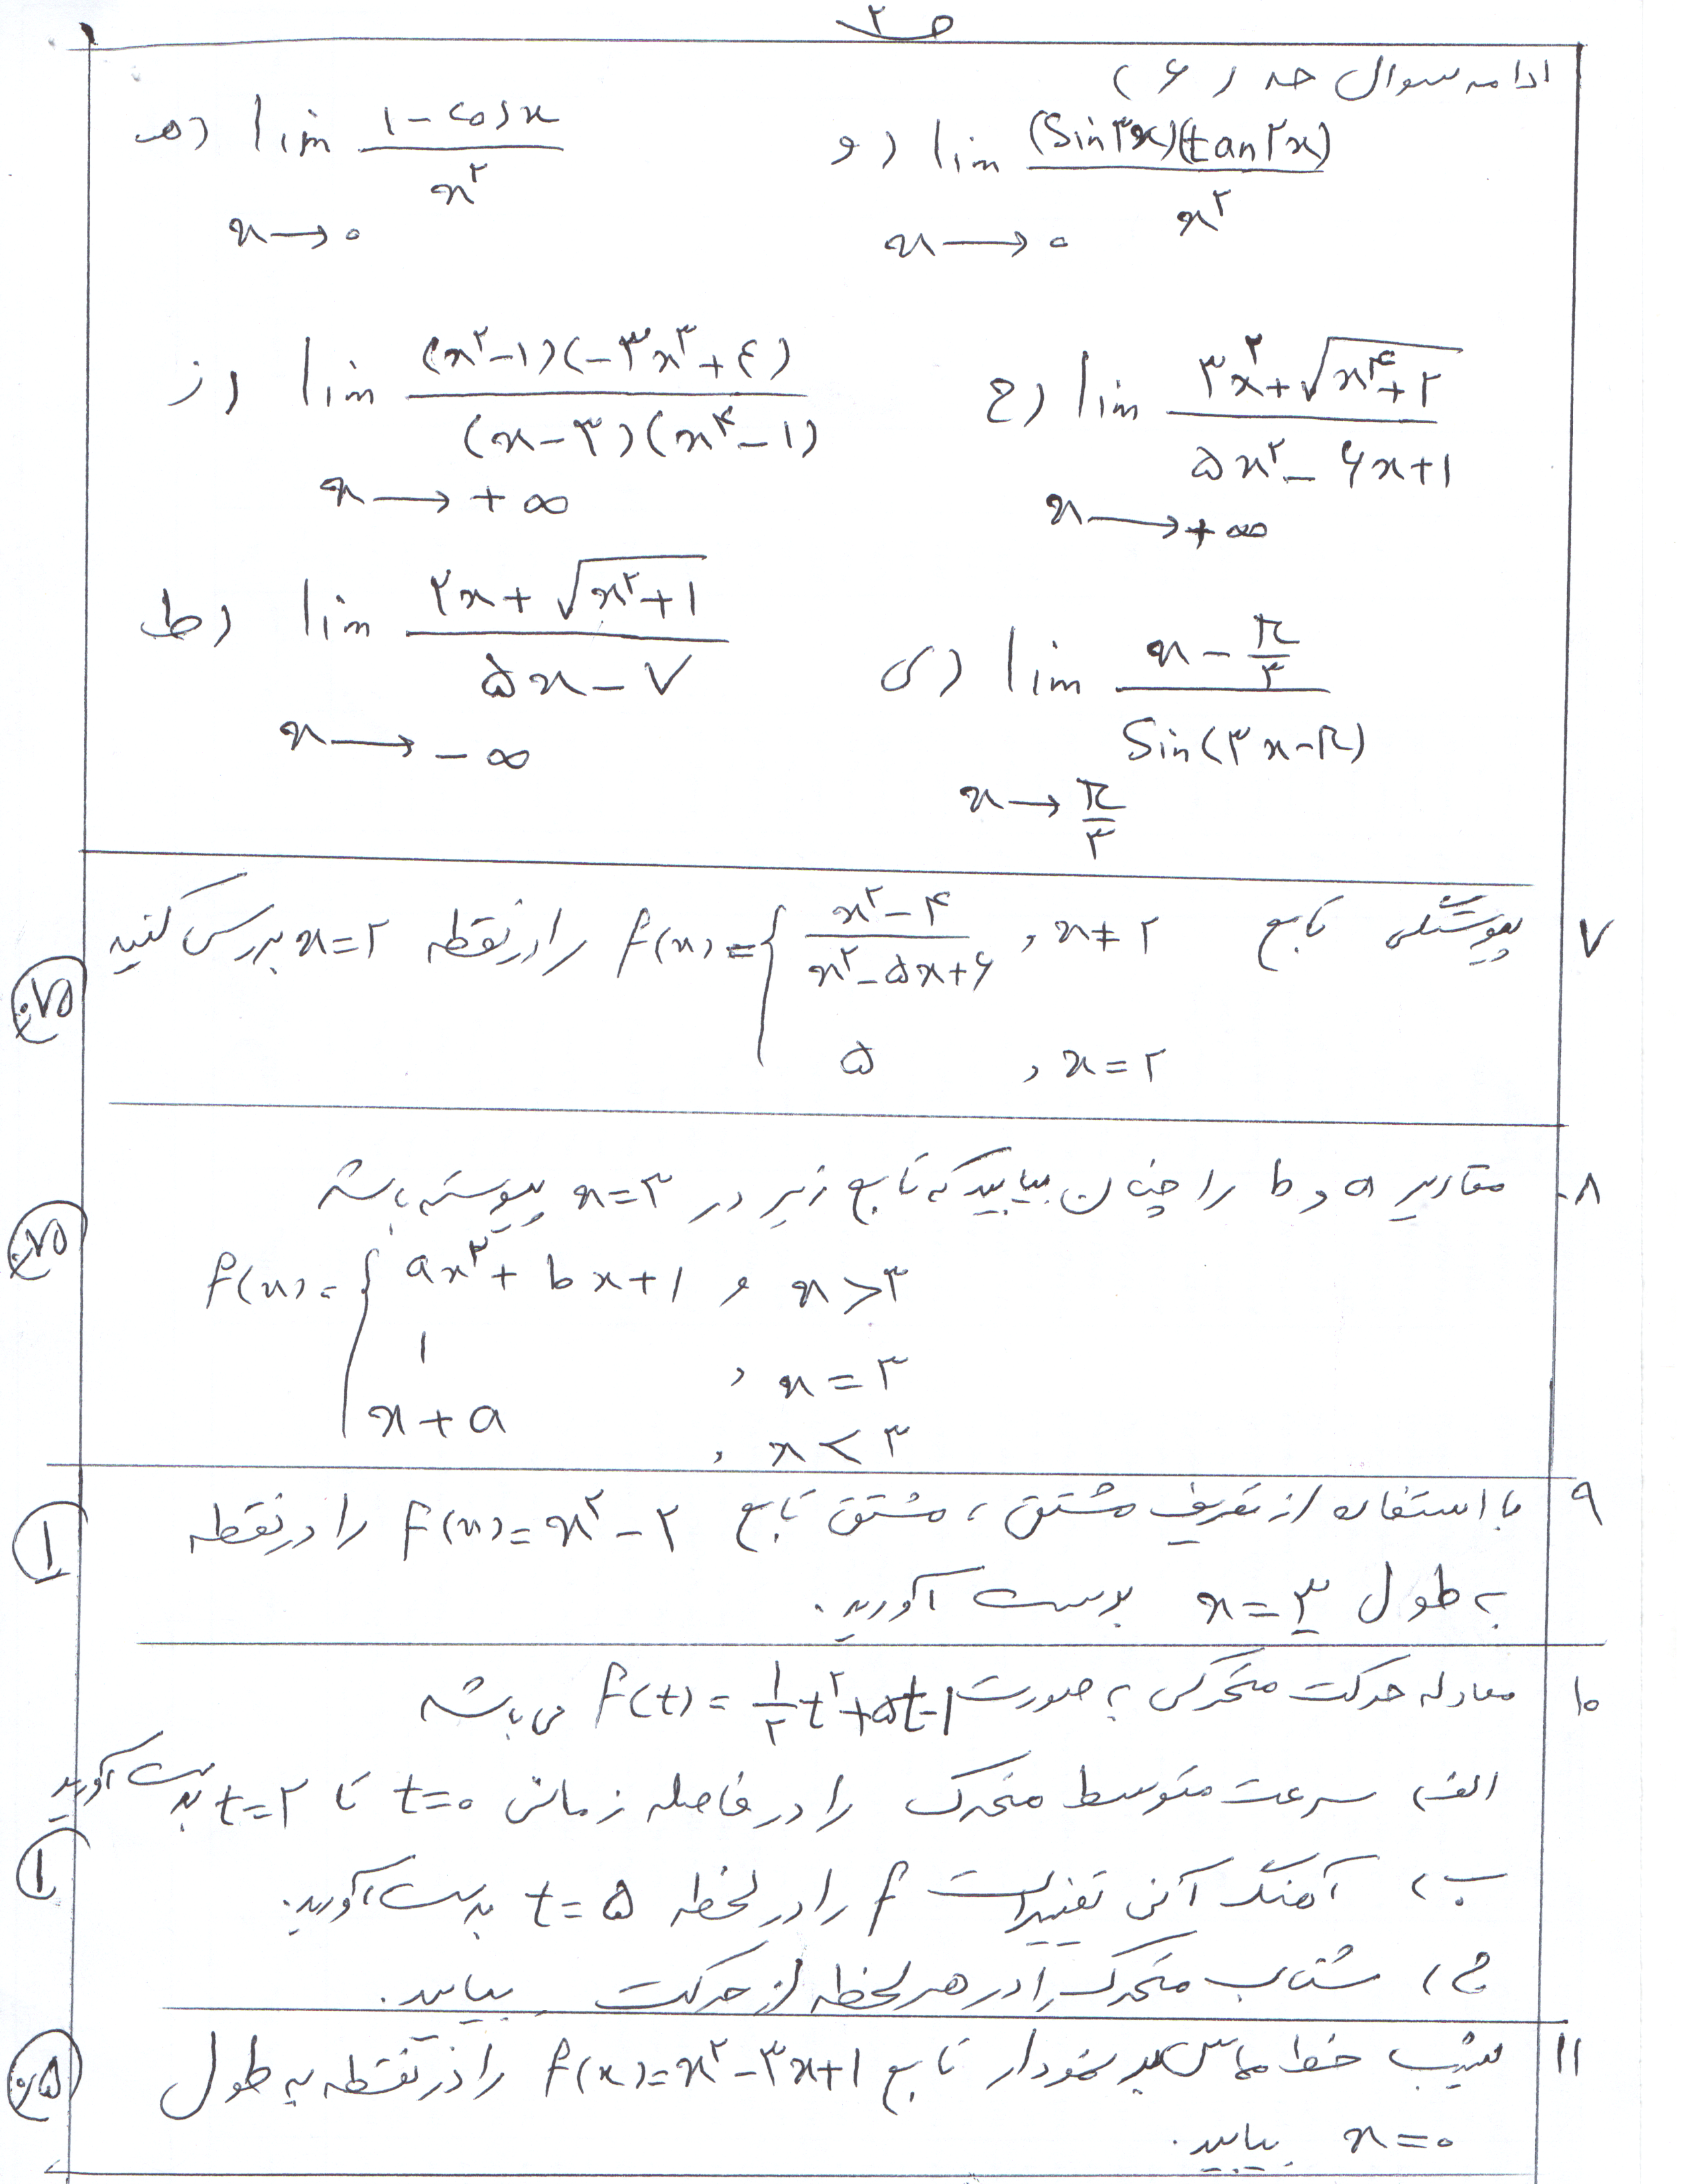 ص ۲
ادامه سوال حد (۶)
ه) lim x→۰ (۱-cosx)/x^۲
و) lim x→۰ (sin۳x)(tan۲x)/x^۲
ز) lim x→+∞ (x^۲-۱)(-۳x^۳+۴)/(x-۳)(x^۴-۱)
ح) lim x→+∞ (۳x^۲+√(x^۴+۲))/(۵x^۲-۶x+۱)
ط) lim x→-∞ (۲x+√(x^۲+۱))/(۵x-۷)
ی) lim x→π/۳ (x-π/۳)/sin(۳x-π)
۷ پیوستگی تابع f(x)={ (x^۲-۴)/(x^۲-۵x+۶) , x≠۲ را در نقطه x=۲ بررسی کنید
۵ , x=۲
۰/۷۵
۸- مقادیر a و b را چنان بیابید که تابع زیر در x=۳ پیوسته باشد
۰/۷۵
f(x)={ ax^۲+bx+۱ , x>۳
۱ , x=۳
x+a , x<۳
۹ با استفاده از تعریف مشتق، مشتق تابع f(x)=x^۲-۲ را در نقطه
۱
به طول x=۳ بدست آورید.
۱۰ معادله حرکت متحرکی به صورت f(t)=۱/۲t^۲+۵t-۱ می باشد
الف) سرعت متوسط متحرک را در فاصله زمانی t=۰ تا t=۲ بدست آورید
۱
ب) آهنگ آنی تغییرات f را در لحظه t=۵ بدست آورید.
ج) شتاب متحرک را در هر لحظه از حرکت بیابید.
۱۱ شیب خط مماس بر نمودار تابع f(x)=x^۲-۳x+۱ را در نقطه به طول
۰/۵
x=۰ بیابید.